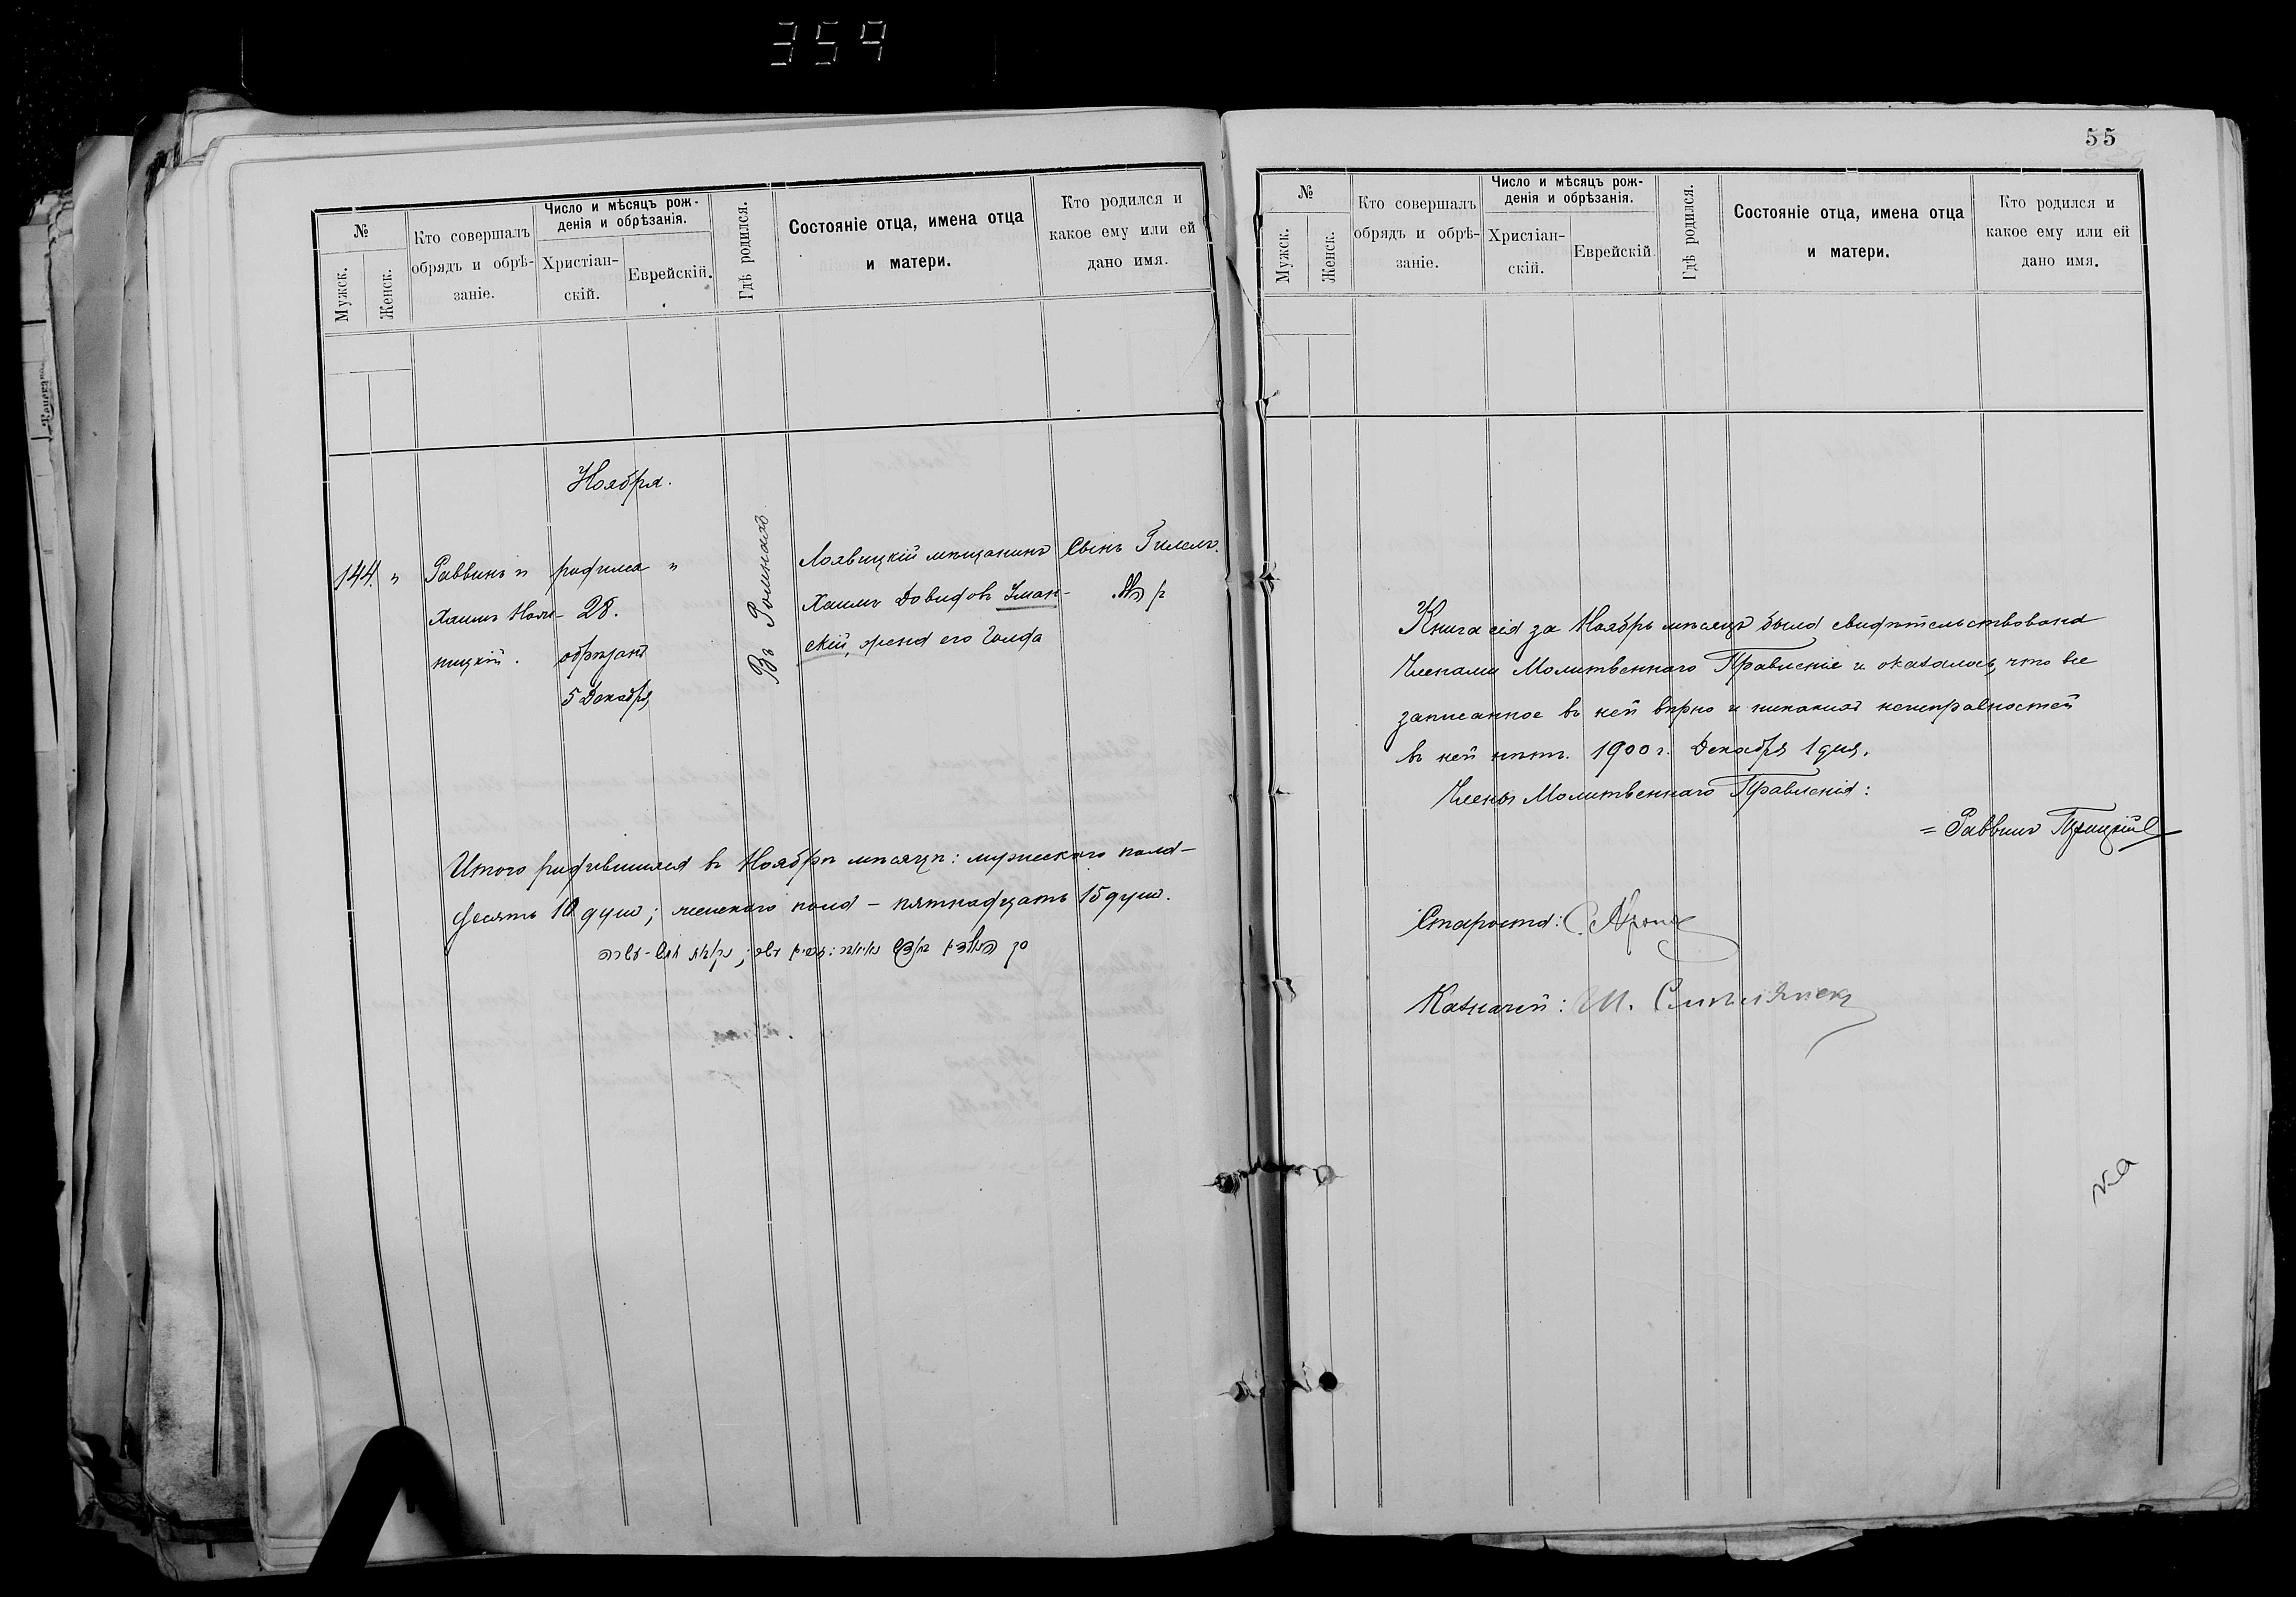 359
№
Мужск.
Женск.
Кто совершалъ
обрядъ и обрѣ-
заніе.
Число и мѣсяцъ рож-
денія и обрѣзанія.
Христіан-
скій.
Еврейскій.
Гдѣ родился.
Состояніе отца, имена отца
и матери.
Кто родился и
какое ему или ей
дано имя.
Ноября.
144. "
Раввинъ и
Хаимъ
ницкій.
родился "
28.
обрѣзанъ
5 Декабря
Въ Ромнахъ
мѣщанинъ
Хаимъ Довидовъ Уман-
скій, жена его Голда
Сынъ Гилель.
בן הלל
Итого родившихся въ Ноябрѣ мѣсяцѣ: мужескаго пола -
десять 10 душ; женскаго пола - пятнадцать 15 душ.
55
№
Мужск.
Женск.
Кто совершалъ
обрядъ и обрѣ-
заніе.
Число и мѣсяцъ рож-
денія и обрѣзанія.
Христіан-
скій.
Еврейскій
Гдѣ родился.
Состояніе отца, имена отца
и матери.
Кто родился и
какое ему или ей
дано имя.
Книга сія за Ноябрь мѣсяцъ была свидѣтельствована
Членами Молитвеннаго Правленіе и оказалось, что все
записанное въ ней вѣрно и никакихъ неисправностей
въ ней нѣтъ. 1900 г. Декабря 1 дня.
Члены Молитвеннаго Правленія:
= Раввинъ
Староста:
Казначей: Ш.